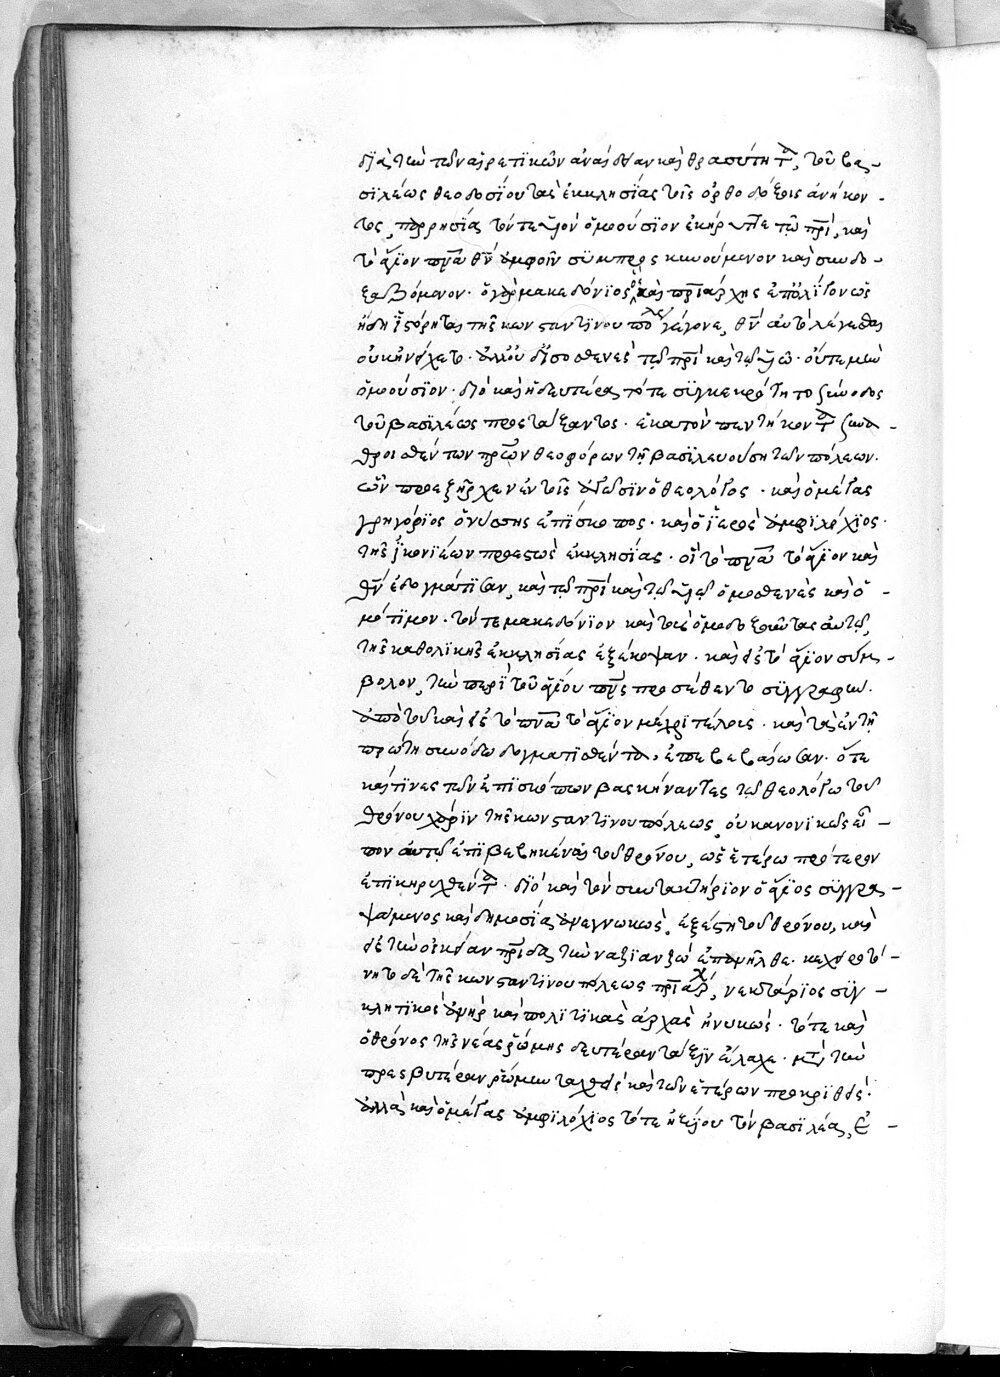 διὰ τὴν τῶν αἱρετικῶν ἀναίδειαν καὶ θρασύτητα, τοῦ βα-
σιλέως θεοδοσίου τὰς ἐκκλησίας τοῖς ὀρθοδόξοις ἀνήκον-
τος, παρρησία τόν τε υἱὸν ὁμοούσιον ἐκήρυττε τῷ πρὶ, καὶ
τὸ ἅγιον πνᾶ θν ἀμφοῖν συμπροσκυνούμενον καὶ συνδο-
ξαζόμενον. ὁ γὰρ μακεδόνιος ὃς καὶ πριάρχης ἐπὸλίγον ὡς
ἤδη ἱστόρηται τῆς κωνσταντίνου πόλεως γέγονε, θν αὐτὸ λέγεσθαι
οὐκ ἠνείχετο. ἀλλ' οὐδ' ἰσοσθενὲς τῶ πρὶ καὶ τῶ υἱῶ. οὔτε μὴν
ὁμοούσιον. διὸ καὶ ἡ δευτέρα τότε συγκεκρότητο σύνοδος
τοῦ βασιλέως προστάξαντος. ἑκατὸν πεντήκοντα συνα-
θροισθέντων πρων θεοφόρων τῆ βασιλευούση τῶν πόλεων.
ὧν προεξῆρχεν ἐν τοῖς ὁ θεολόγος. καὶ ὁ μέγας
γρηγόριος ὁ νύσσης ἐπίσκοπος. καὶ ὁ ἱερὸς ἀμφιλόχιος.
τῆς ἰκονιέων προεστὼς ἐκκλησίας. οἳ τὸ πνᾶ τὸ ἅγιον καὶ
θν ἐδογμάτισαν, καὶ τῶ πρὶ καὶ τῶ υἱῶ ὁμοσθενὲς καὶ ὁ-
μότιμον. τόν τε μακεδόνιον καὶ τοὺς ὁμοδοξοῦντας αὐτῶ,
τῆς καθολικῆς ἐκκλησίας ἐξέκοψαν. καὶ εἰς τὸ ἅγιον σύμ-
βολον, τὴν περὶ τοῦ ἁγίου πνς προσέθεντο συγγραφὴν.
ἀπὸ τοῦ καὶ εἰς τὸ πνᾶ τὸ ἅγιον μέχρι τέλους. καὶ τὰ ἐν τῆ
πρώτη συνόδω δογματισθέντα, ἐπεβεβαίωσαν. ὅτε
καί τινες τῶν ἐπισκόπων βασκήναντες τῶ θεολόγω τοῦ
θρόνου χάριν τῆς κωνσταντίνου πόλεως, οὐ κανονικῶς εἶ-
πον αὐτῶ ἐπιβεβηκέναι τοῦ θρόνου, ὡς ἑτέρω πρότερον
ἐπικηρυχθέντα. διὸ καὶ τὸν συντακτήριον ὁ ἅγιος συγγρα-
ψάμενος καὶ δημοσία ἀνεγνωκὼς, ἐξέστη τοῦ θρόνου, καὶ
εἰς τὴν οἰκείαν πρίδα τὴν ναζιανζὼ ἐπανῆλθε. κεχειροτό-
νητο δὲ τῆς κωνσταντίνου πόλεως πριάρχ, νεκτάριος συγ-
κλητικὸς ἀνὴρ καὶ πολιτικὰς ἀρχὰς ἠνυκώς. τότε καὶ
ὁ θρόνος τῆς νέας ῥώμης δευτέραν τάξιν ἔλαχε. μετὰ τὴν
πρεσβυτέραν ῥώμην ταχθεὶς καὶ τῶν ἑτέρων προκριθεὶς.
ἀλλὰ καὶ ὁ μέγας ἀμφιλόχιος τότε ἠξίου τὸν βασιλέα, ἐ-